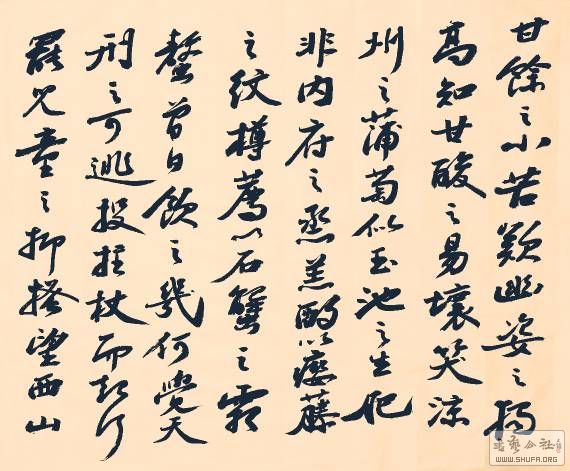 甘餘之小苦歎幽姿之獨
高知甘酸之易壞笑涼
州之蒲萄似玉池之生肥
非内府之蒸羔酌以癭藤
之紋樽薦以石蟹之霜
螯曾日飲之幾何覺天
刑之可逃投拄杖而起行
罷兒童之抑搔望西山
书艺公社
WWW.SHUFA.ORG